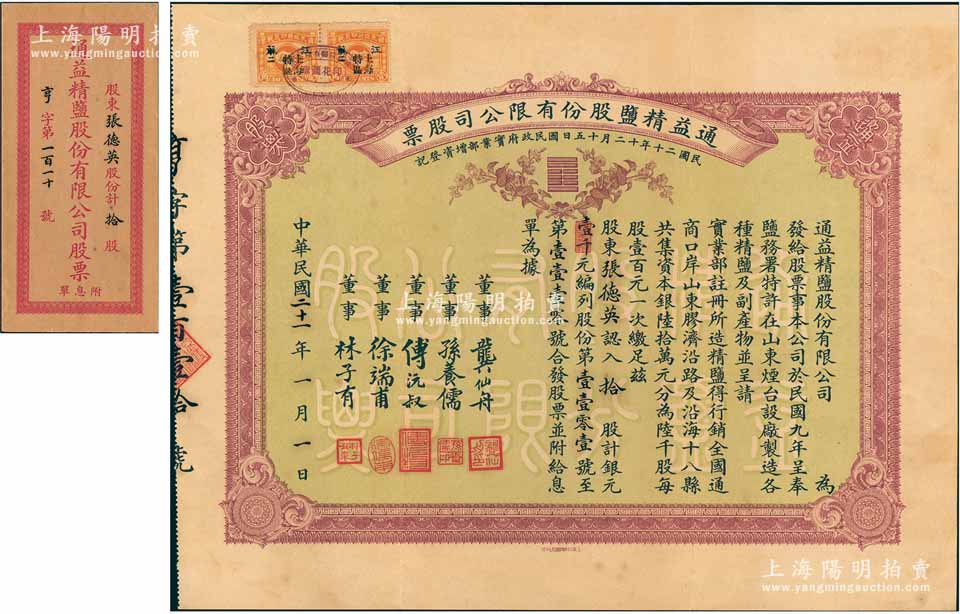 股東張德英股份計拾股
通益精鹽股份有限公司股票
亨字第一百一十號
附息單
上海陽明拍賣
www.yangmingauction.com
通益精鹽股份有限公司股票
民國二十年十二月十五日國民政府實業部增資登記
通益精鹽股份有限公司 為
發給股票事本公司於民國九年呈奉
鹽務署特許在山東煙台設廠製造各
種精鹽及副產物並呈請
實業部註冊所造精鹽得行銷全國通
商口岸山東膠濟沿路及沿海十八縣
共集資本銀陸拾萬元分為陸千股每
股壹百元一次繳足茲
股東張德英認入拾股計銀元
壹千元編列股份第壹壹零壹號至
第壹壹壹零號合發股票並附給息
單為據
董事龔仙舟
董事孫養儒
董事傅沅叔
董事徐端甫
董事林子有
中華民國二十一年一月一日
字第壹百壹拾號
上海陽明拍賣
www.yangmingauction.com
上海陽明拍賣
www.yangmingauction.com
上海陽明拍賣
www.yangmingauction.com